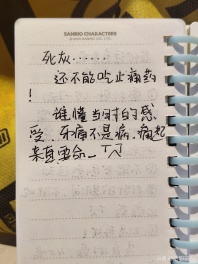 SANRIO CHARACTERS
死灰……
还不能吃止痛药
!
谁懂当时的感
受，牙痛不是病，痛起
来真要命一TAT